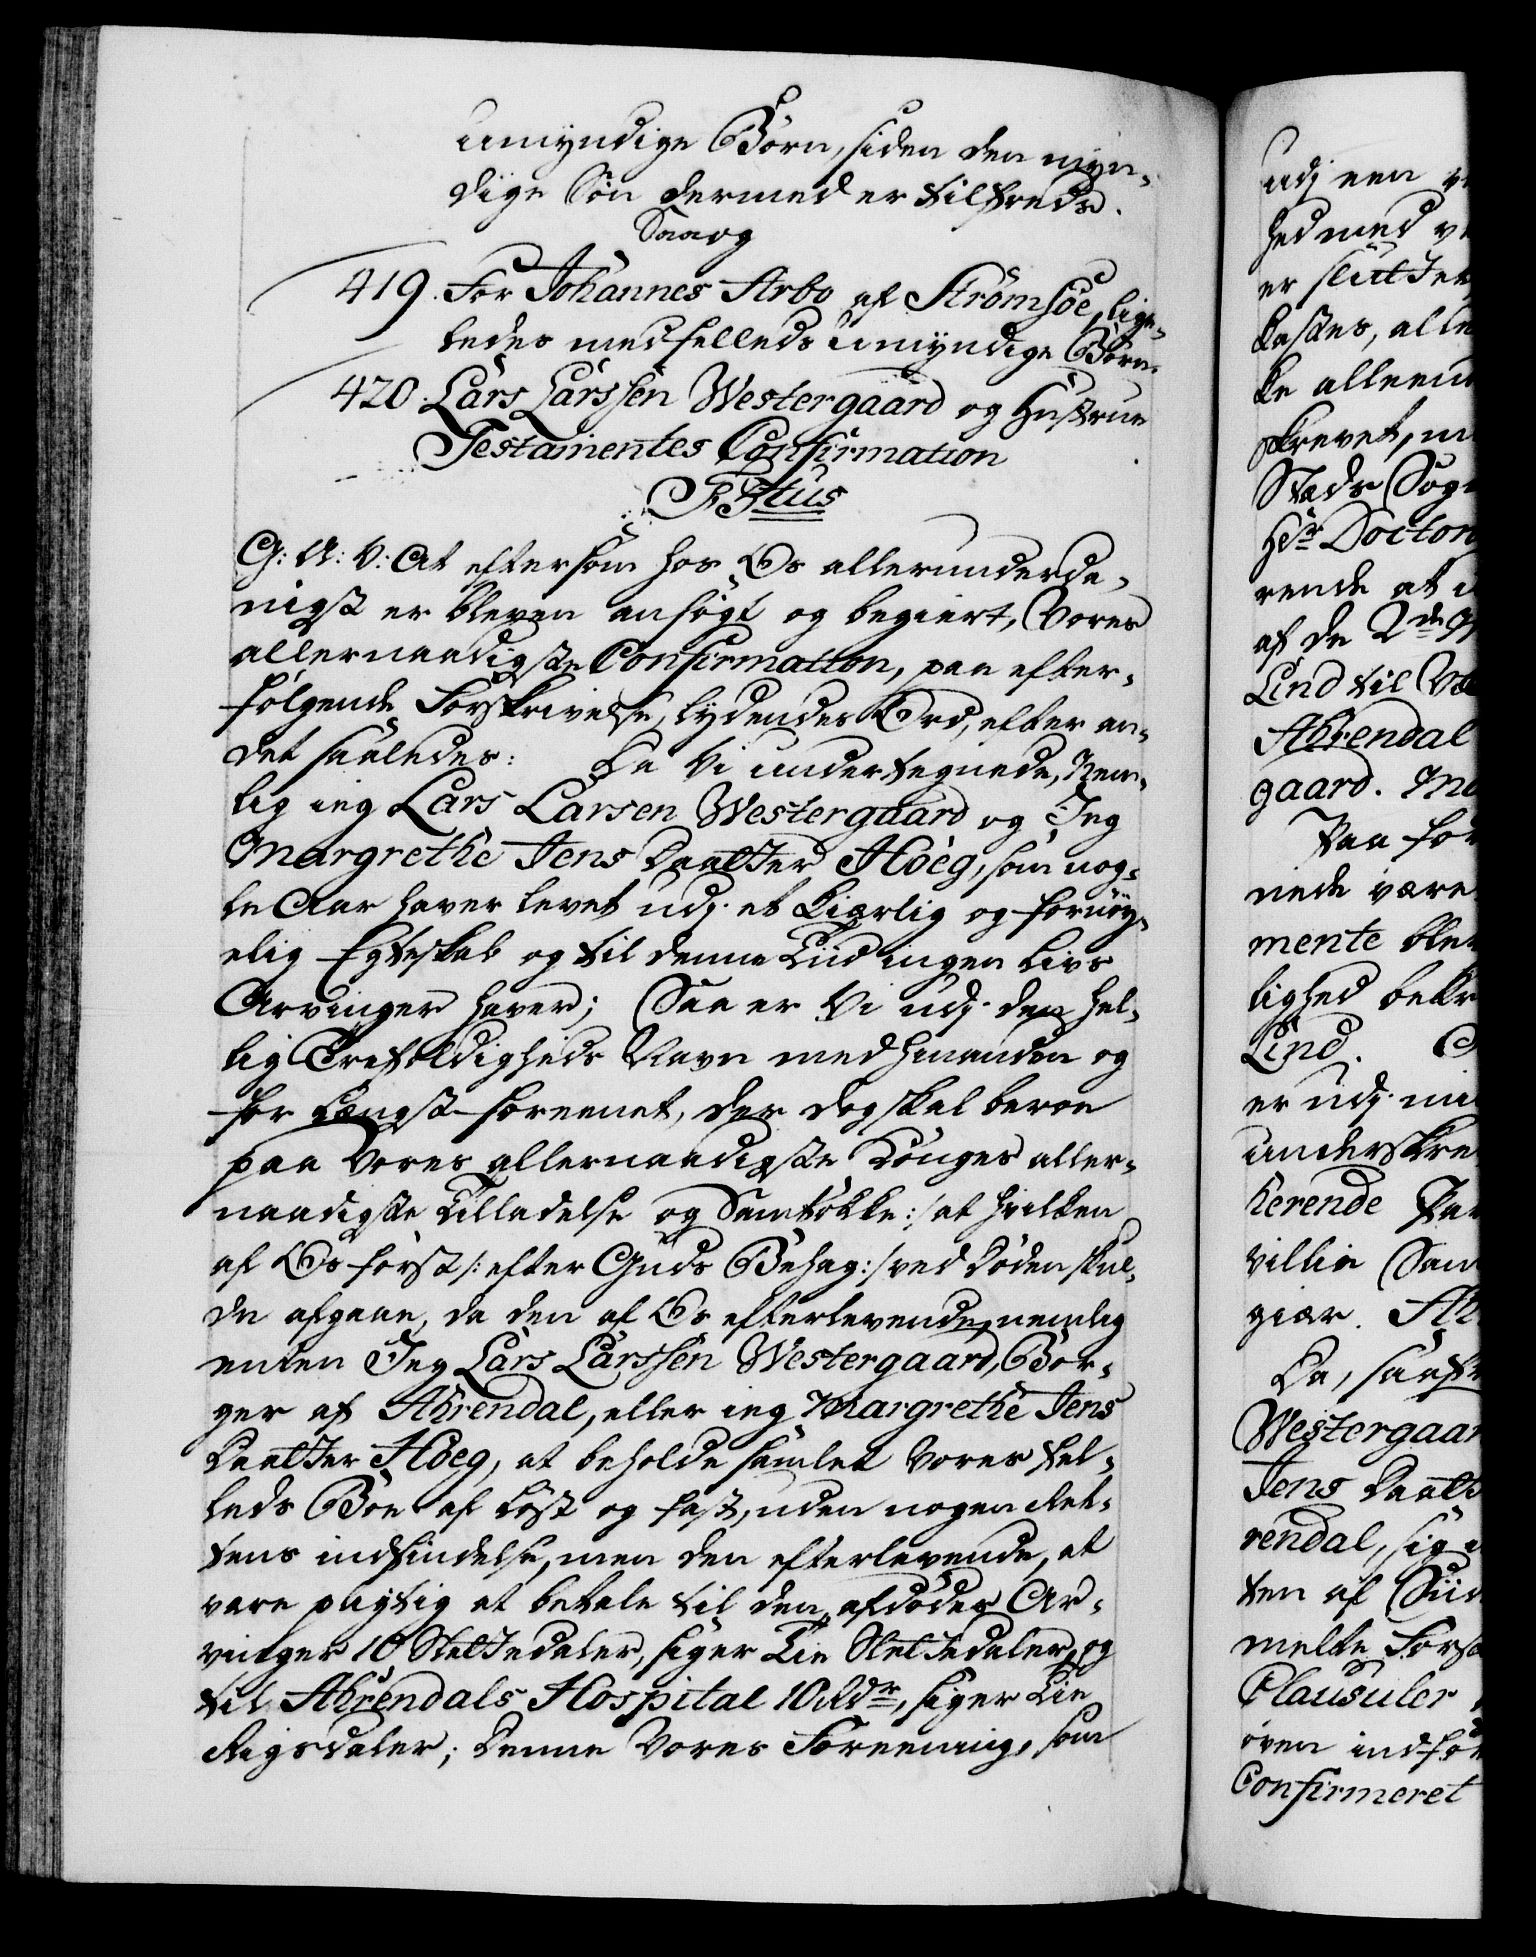 umyndige Børn, siden den myn-
dige Søn dermed er tilfreds.
Saa og
419. For Johannes Arbo af Strømsøe, lige-
ledes med felleds umyndige Børn.
420. Lars Larssen Westergaard og Hustrue
Testamentes Confirmation
F Ftus
G: A: V: At eftersom hos Os allerunderda-
nigst er bleven ansøgt og begiert, Vores
allernaadigste Confirmation, paa efter-
følgende Forskrivelse, lydendes Ord, efter an-
det saaledes: Da Vi undertegnede, Nem-
lig ieg Lars Larsen Westergaard og Jeg
Margrethe Jens Daatter Höeg, som nog-
le Aar haver levet udj et kierlig og fornøy-
elig Egteskab og til denne Tiid ingen livs
Arvinger haver; Saa er Vi udj den hel-
lig Trefoldigheds Navn med hinanden og
for længst foreenet, der dog skal beroe
paa Vores allernaadigste Konges aller-
naadigste Tilladelse og Samtøkke:/ at hvilken
af Os først /: efter Guds Behag:/ ved Døden skul-
de afgaae, da den af Os efterlevende, nemlig
enten Jeg Lars Larssen Westergaard, Bor-
ger af Ahrendal, eller ieg Margrethe Jens
Daatter Höeg, at beholde samlet Vores fel-
leds Boe af løst og fast, uden nogen Ret-
tens indfindelse, men den efterlevende, at
være pligtig at betale til den afdødes Ar-
vinger 10 Slettedaler, siger Tie Slettedaler, og
til Ahrendals Hospital 10 Rdr, siger Tie
Rigsdaler; Denne Vores Foreening, som
udj een
hed med
er slutter
kastes, alle
ke alleene
skrevet, m
Stæds Sogn
Hr Doctor
rende at
af de 2de
Lind til
Ahrendal
gaard.
Paa for
niede være
mente blev
lighed bekr
Lind.
er udj min
underskre
herende
villie Sam
giør. Ah
Da, saafr
Westergaar
Jens Daatt
rendal, sig
ten af
melte Forsk
Clausuler
oven indfør
Confirmeret